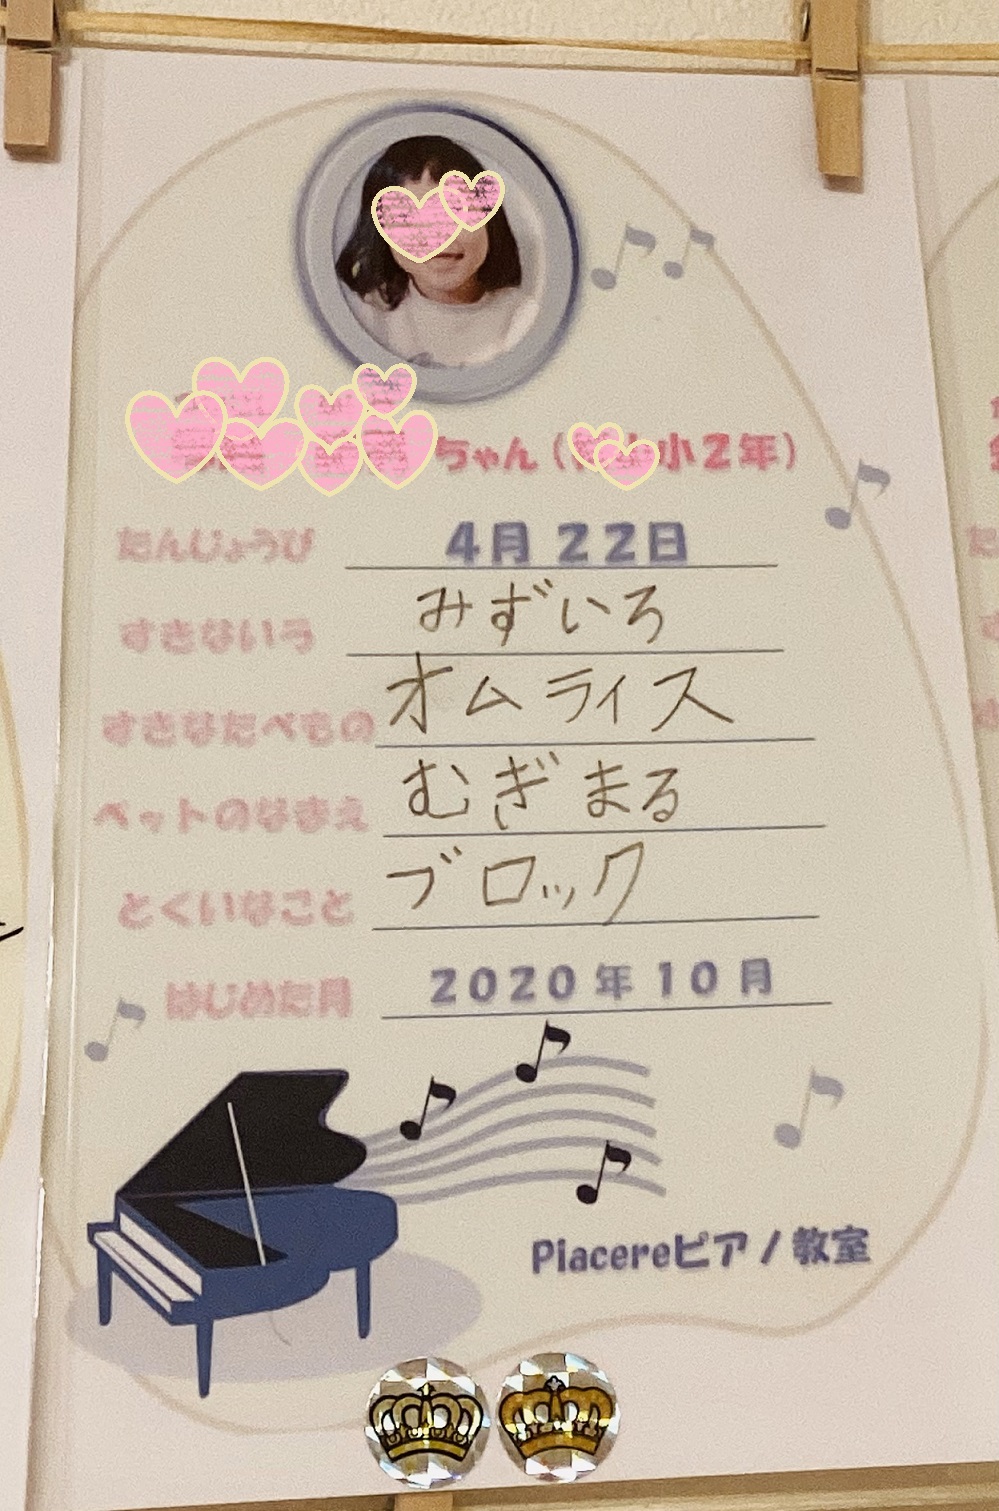 ちゃん（ 小2年）
たんじょうび 4月22日
すきないろ みずいろ
すきなたべもの オムライス
ペットのなまえ むぎまる
とくいなこと ブロック
はじめた月 2020年10月
Piacereピアノ教室